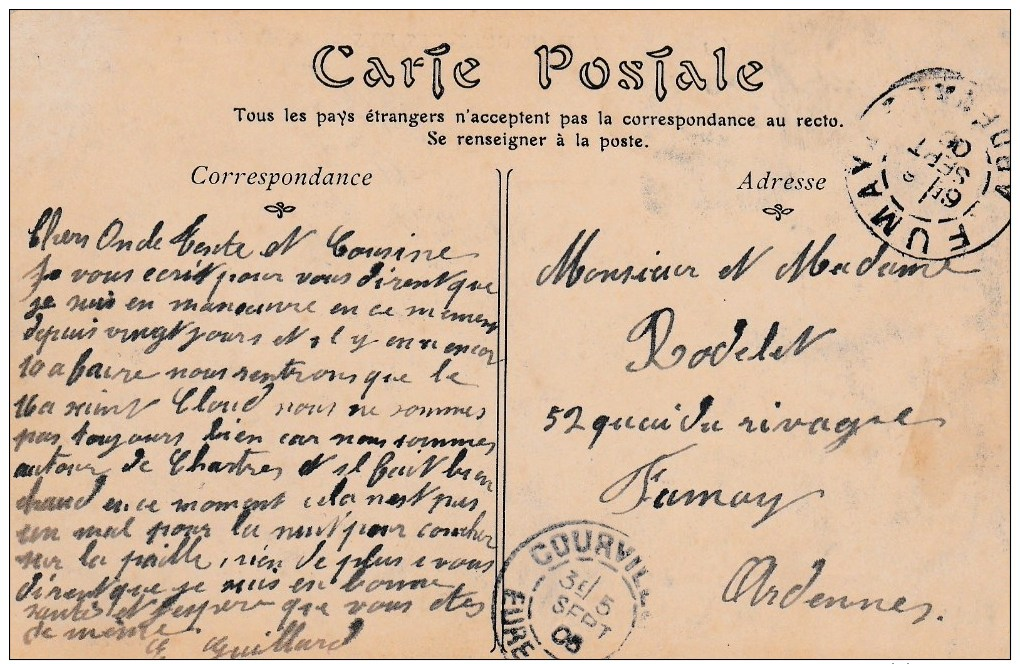 Carte Postale
Tous les pays étrangers n'acceptent pas la correspondance au recto.
Se renseigner à la poste.
Correspondance
Chers Oncle Tente et Cousine
Je vous ecrit pour vous dirent que
je suis en manoeuvre en ce moment
depuis vingt jours et il y en a encor
10 a faire nous rentrons que le
16 a saint Cloud nous ne sommes
pas toujours bien car nous sommes
autour de Chartres et il fait bien
chaud en ce moment cela nest pas
un mal pour la nuit pour coucher
sur la paille, rien de plus a vous
dirent que je suis en bonne
santé et j'espere que vous etes
de même.
Guillard
Adresse
Monsieur et Madame
Rodelet
52 quai du rivage
Fumay
Ardennes.
FUMAY ARDENNES
6
SEPT
COURVILLE
3E 5
SEPT
05
EURE